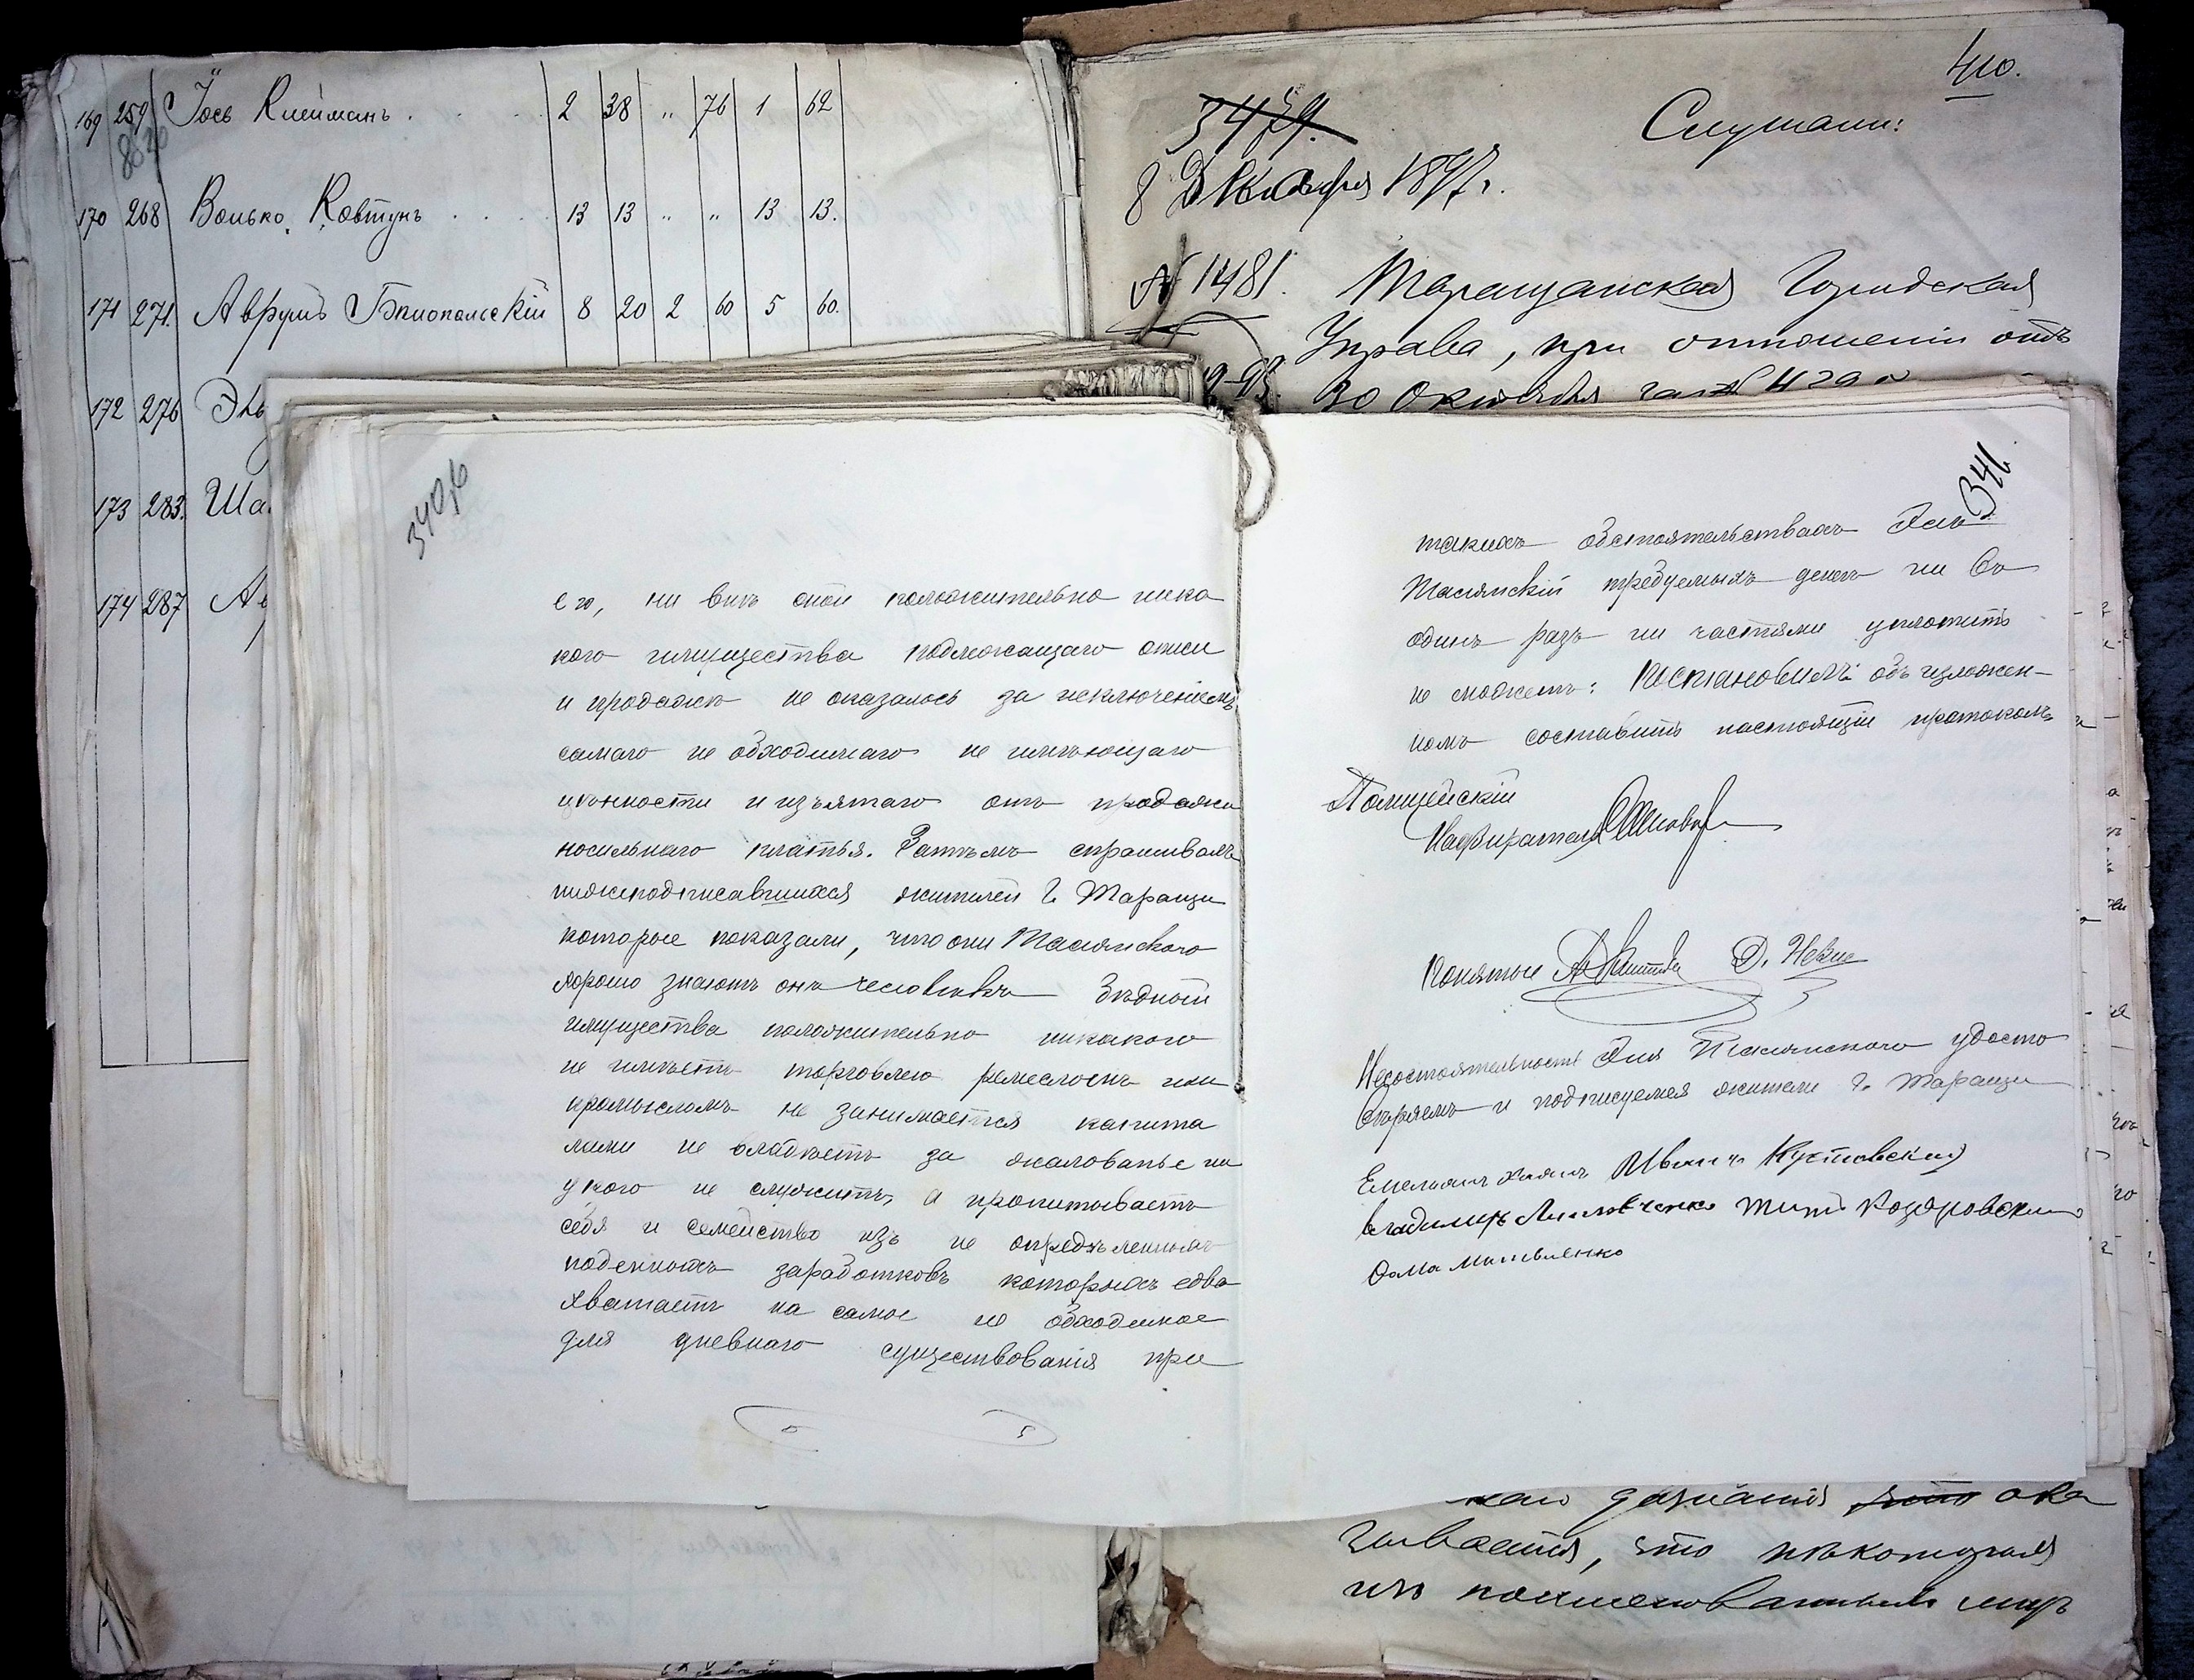 169 259 Іось Клейманъ . . . 2 38 " 76 1 62
170 268 Волько Ковтунъ . . . 13 13 " " 13 13.
171 271. Аврумъ Бялопольскій 8 20 2 60 5 60.
172 276
173 283. Ша
174 287
410.
3479.
Слушали:
8 Декабря 1897 г.
№ 1481. Таращанская Городская
Управа, при отношеніи отъ
30 Октября за №
340 об
его, ни внѣ оной положительно ника
кого имущества подлежащаго описи
и продажѣ не оказалось за исключеніемъ
самаго не обходимаго не имѣющаго
цѣнности и изъятаго отъ продажи
носильнаго платья. Затѣмъ спрашивалъ
нижеподписавшихся жителей г. Таращи
которые показали, что они Таслянского
хорошо знаютъ онъ человѣкъ бѣдный
имущества положительно никакого
не имѣетъ торговлею ремесломъ или
промысломъ не занимается капита
лами не владѣетъ за жалованье ни
у кого не служитъ, а пропитываетъ
себя и семейство изъ не опредѣленныхъ
поденныхъ заработковъ которыхъ едва
хватаетъ на самое не обходимое
для дневнаго существованія при
341.
такихъ обстоятельствахъ
Таслянскій требуемыхъ денегъ ни въ
одинъ разъ ни частями уплотить
не можетъ: Постановилъ: объ изложен-
номъ составить настоящій протоколъ
Полицейскій
Надзиратель
Понятые
Несостоятельность Таслянского удосто
вѣряемъ и подписуемся жители г. Таращи
Емельянъ Иванъ Кустовскій
Владимиръ Титъ Козаровскій
Фома Матвіенко
дознанія что ока
зывается, что нѣкоторыя
изъ поименованныхъ